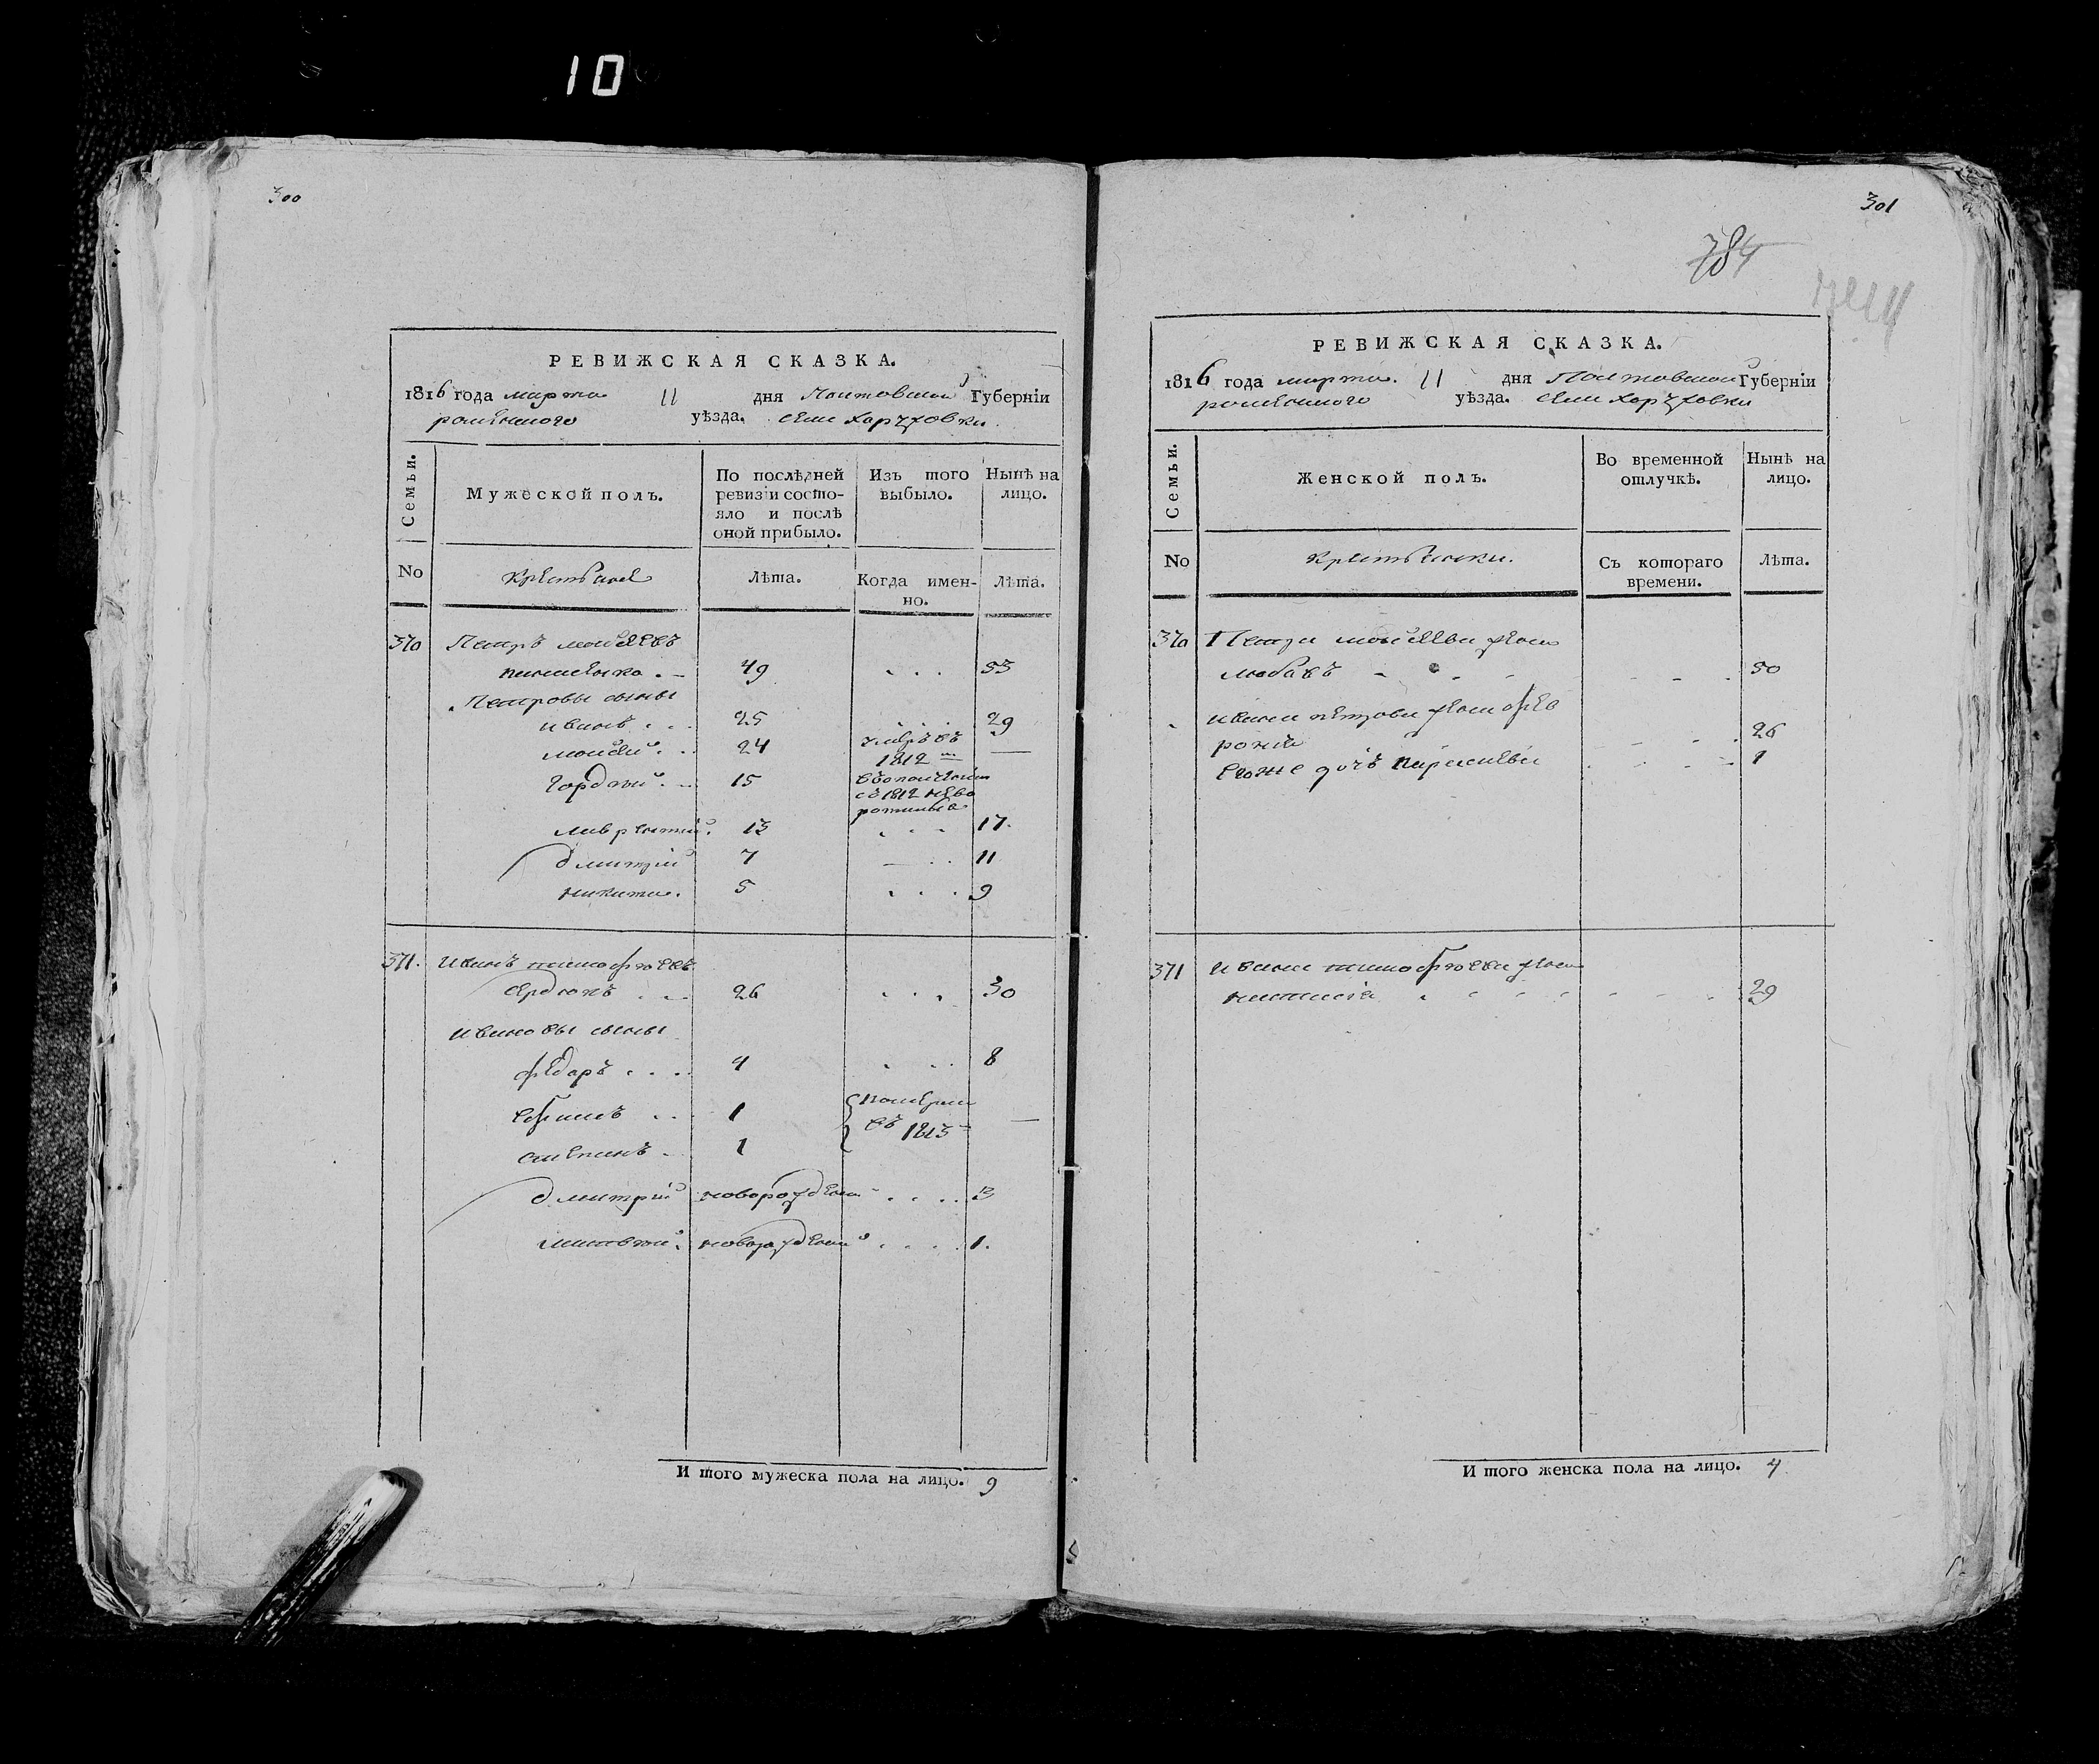 10
300
РЕВИЖСКАЯ СКАЗКА.
1816 года марта 11 дня Полтавской Губерніи
роменского уѣзда. села Хоружовки.
Семьи.
Мужеской полъ.
По послѣдней ревизіи состояло и послѣ оной прибыло.
Изъ того выбыло.
Нынѣ на лицо.
No
Крестьяне
Лѣта.
Когда именно.
Лѣта.
370 Петръ моисеевъ
49 . . . 53
Петровы сыны
иванъ . . . 25 . . . 29
моисей . . 24 умръ въ 1812 —
Гордѣй . . 15 въ ополчении с 1812 не возвратился
лаврентий. 13 . . . 17.
дмитрій 7 — . . 11
никита. 5 . . . 9
371. Иванъ тимофѣевъ
сердюкъ . . . 26 . . . 30
ивановы сыны
федаръ . . . . 4 . . . 8
ефимъ . . . 1 померли
въ 1813 —
степанъ . 1
дмитрій новорожден . . . . 3
матвѣй. новорожденй . . . . 1.
И того мужеска пола на лицо. 9
301
784
РЕВИЖСКАЯ СКАЗКА.
1816 года марта. 11 дня Полтавской Губерніи
роменского уѣзда. села Хоружовки
Семьи.
Женской полъ.
Во временной отлучкѣ.
Нынѣ на лицо.
No
Крестьянки.
Съ котораго времени.
Лѣта.
370 Петра моисеева жена
любовъ 50
ивана петрова жена фев
рония 26
его же дочъ парасковия 1
371 Ивана тимофѣева жена
настасія 29
И того женска пола на лицо. 4